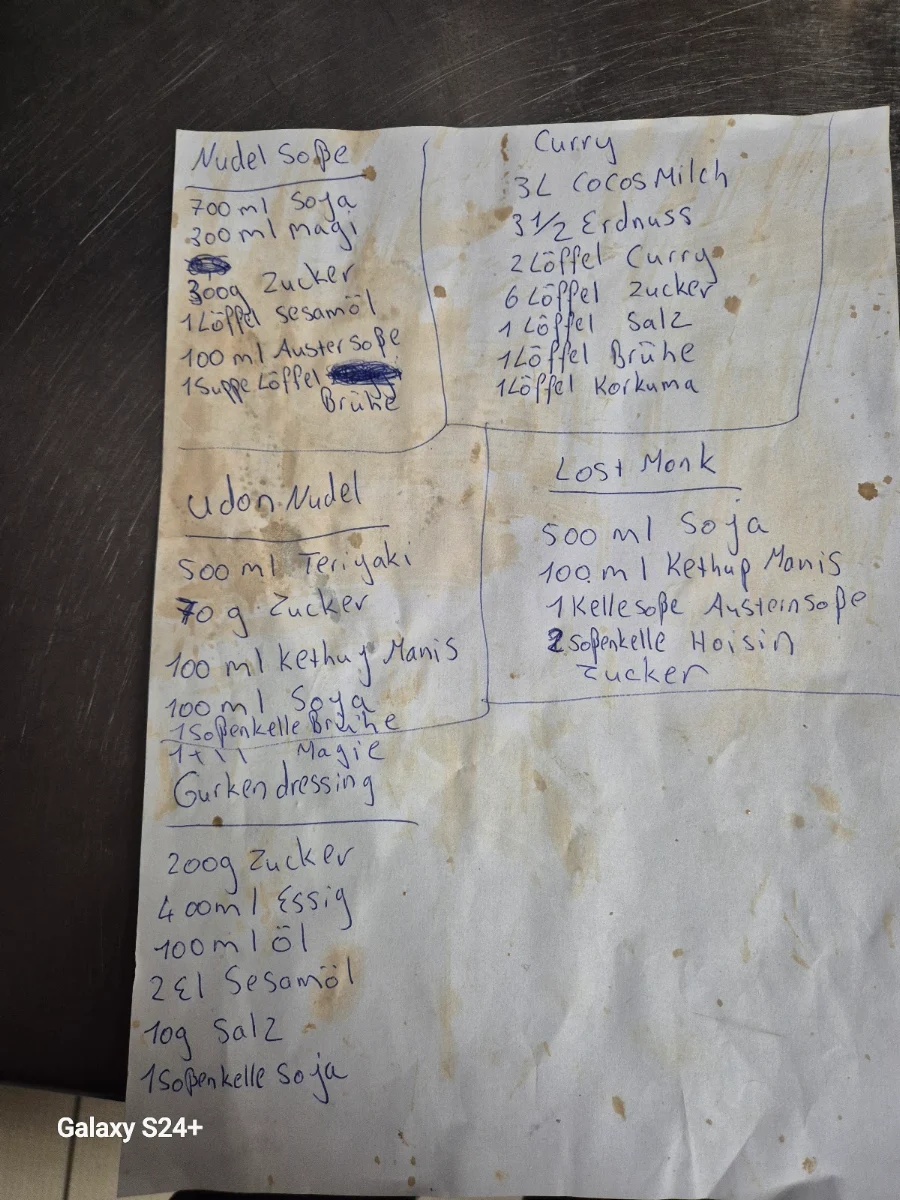 Nudel Soße
700 ml Soja
300 ml Magi
300g Zucker
1 Löffel Sesamöl
100 ml Auster Soße
1 Suppe Löffel
Brühe
Curry
3L CocosMilch
3 1/2 Erdnuss
2 Löffel Curry
6 Löffel Zucker
1 Löffel Salz
1 Löffel Brühe
1 Löffel Korkuma
Udon Nudel
500 ml Teriyaki
70 g Zucker
100 ml Kethuy Manis
100 ml Soya
1 Soßenkelle Brühe
Magie
Lost Monk
500 ml Soja
100 ml Kethup Manis
1 Kelle soße Austeinsoße
2 soßenkelle Hoisin
Zucker
Gurken dressing
200g Zucker
400 ml Essig
100 ml öl
2 El Sesamöl
10g Salz
1 Soßenkelle Soja
Galaxy S24+